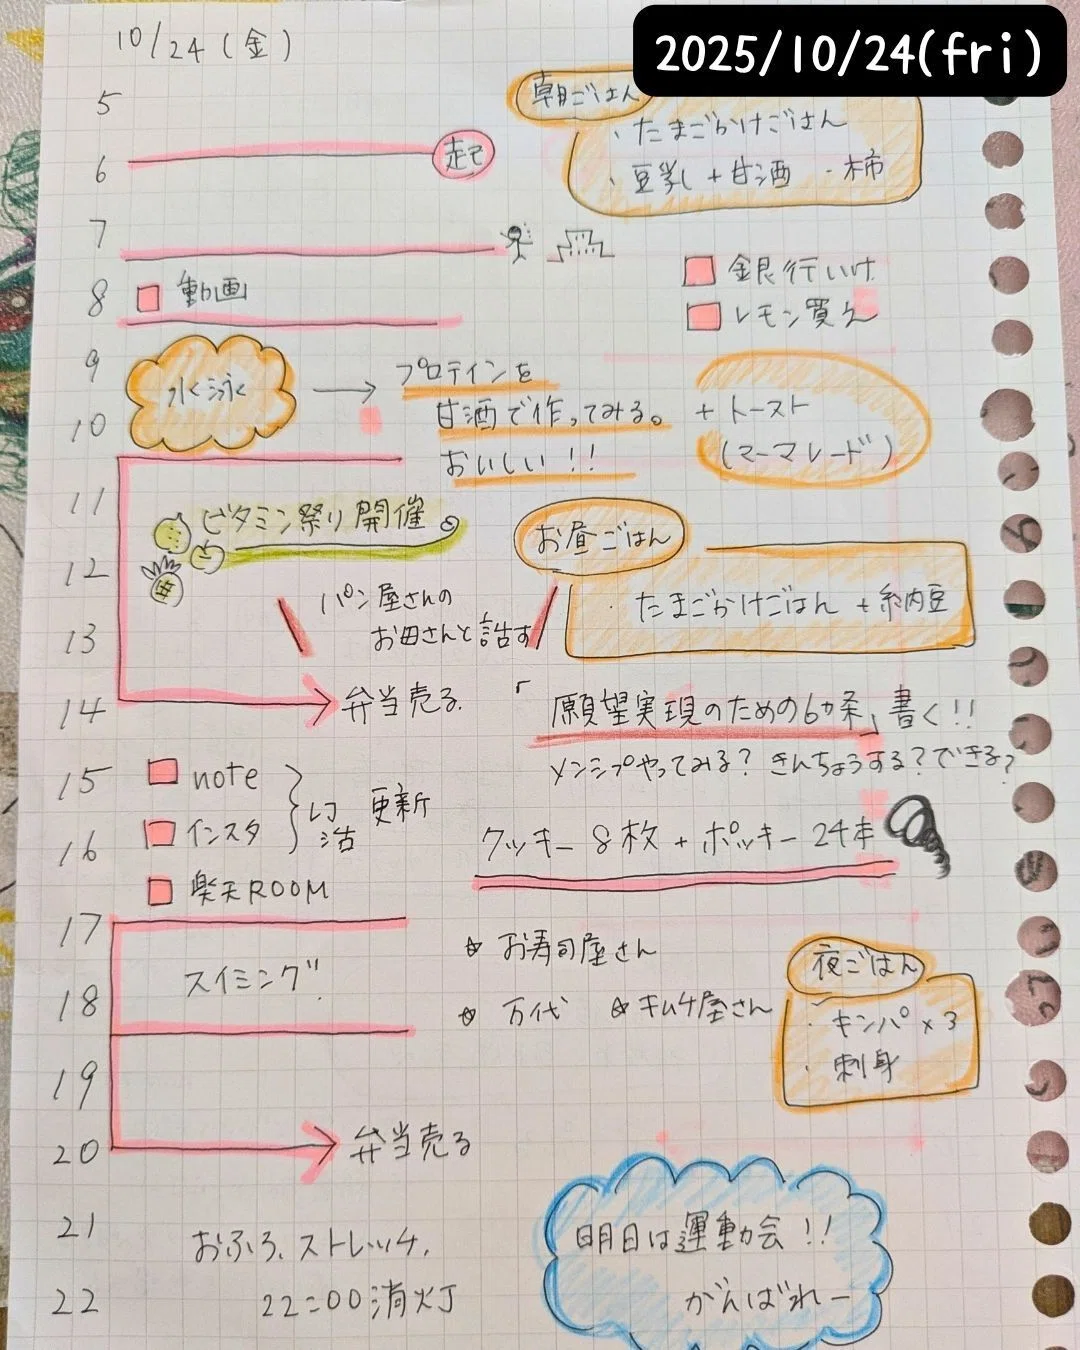 10/24(金)
2025/10/24(fri)
5
朝ごはん
・たまごかけごはん
・豆乳+甘酒 ・柿
6
起
7
銀行いけ
レモン買え
8
動画
9
水泳 → プロテインを
甘酒で作ってみる。
おいしい!!
+トースト
(マーマレード)
10
11
ビタミン祭り開催
お昼ごはん
・たまごかけごはん+納豆
12
パン屋さんの
お母さんと話す
13
14
弁当売る.
「願望実現のための6カ条」書く!!
メンシプやってみる?きんちょうする?できる?
15
note
インスタ
更新
16
楽天ROOM
クッキー8枚+ポッキー24本
17
スイミング
☆お寿司屋さん
☆万代 ☆キムチ屋さん
18
夜ごはん
・キンパ×3
・刺身
19
20
弁当売る
21
おふろ、ストレッチ、
22
22:00消灯
明日は運動会!!
がんばれー